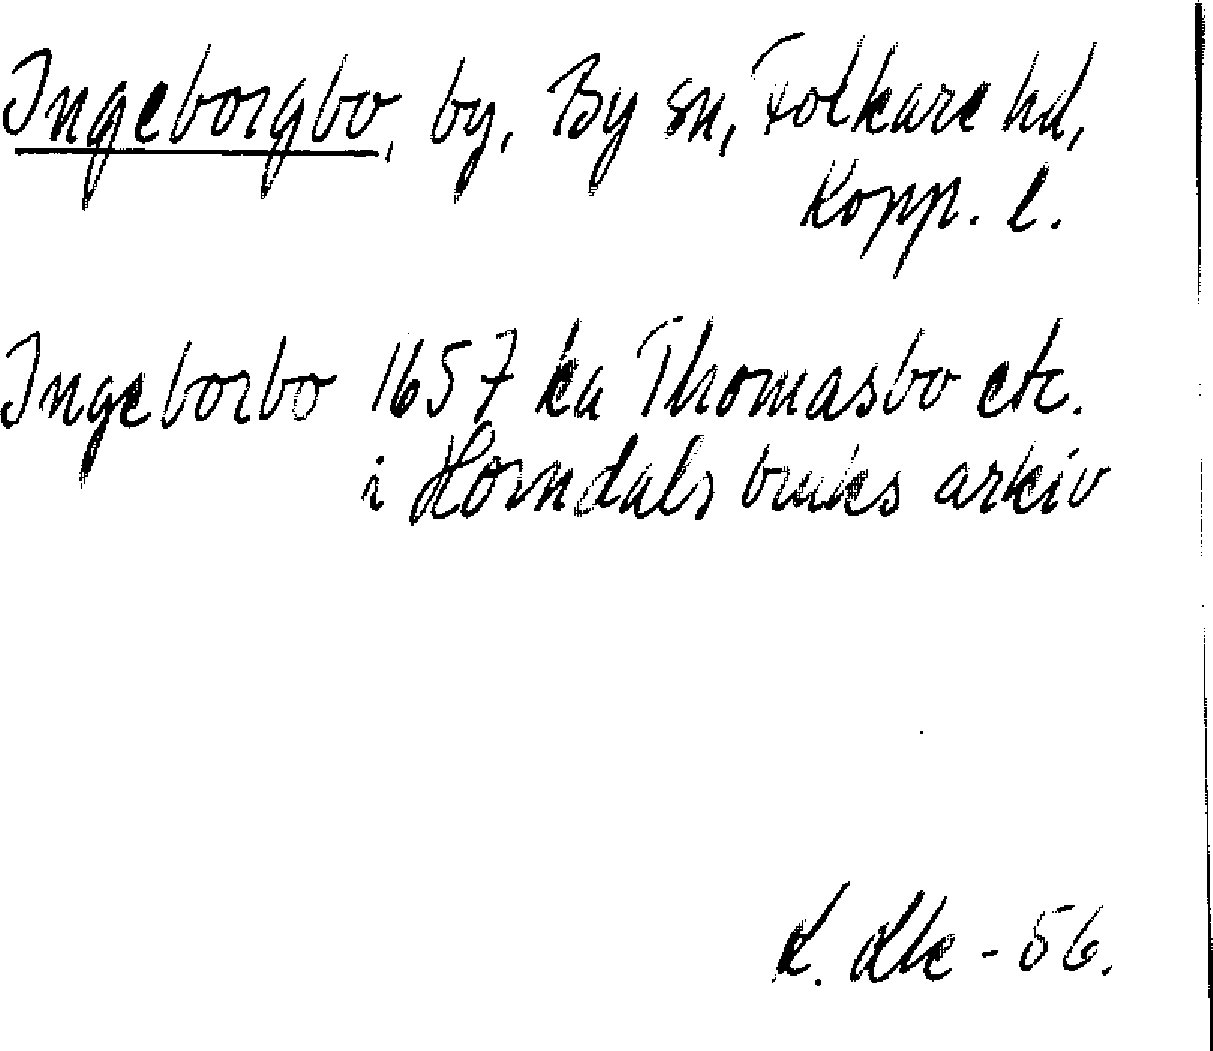 Ingeborgbo, by, By sn, Folkare hd,
Kopp. l.
Ingeborbo 1657 ka Thomasbo etc.
i Horndals bruks arkiv
- 56.